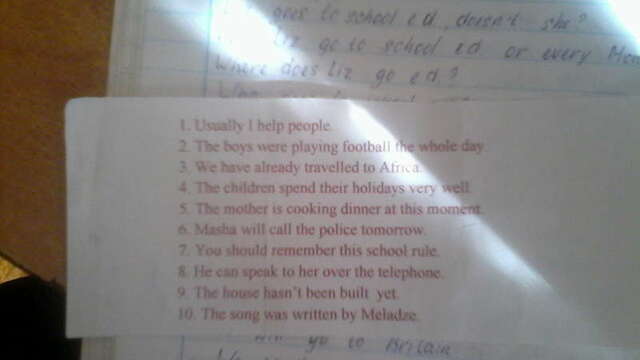 goes to school e.d., doesn't she?
Liz go to school e.d. or every
Where does Liz go e.d?
1. Usually I help people.
2. The boys were playing football the whole day.
3. We have already travelled to Africa.
4. The children spend their holidays very well.
5. The mother is cooking dinner at this moment.
6. Masha will call the police tomorrow.
7. You should remember this school rule.
8. He can speak to her over the telephone.
9. The house hasn't been built yet.
10. The song was written by Meladze.
go to Britain